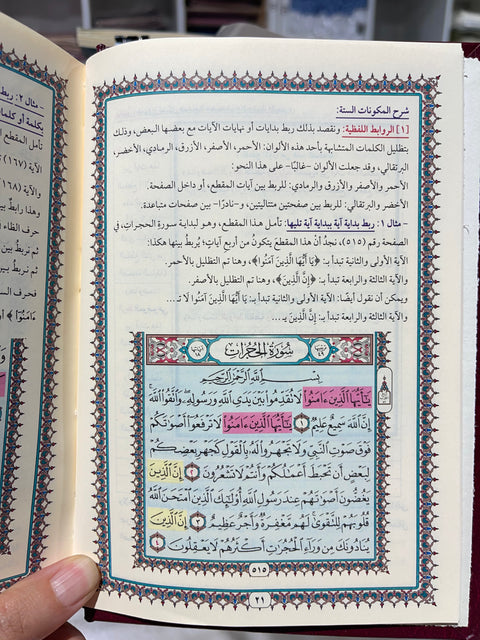 شرح المكونات الستة:
[١] الروابط اللفظية: ونقصد بذلك ربط بدايات أو نهايات الآيات مع بعضها البعض، وذلك
بتظليل الكلمات المتشابهة بأحد هذه الألوان: الأحمر، الأصفر، الأزرق، الرمادي، الأخضر،
البرتقالي، وقد جعلت الألوان -غالبًا- على هذا النحو:
الأحمر والأصفر والأزرق والرمادي: للربط بين آيات المقطع، أو داخل الصفحة.
الأخضر والبرتقالي: للربط بين صفحتين متتاليتين، و-نادرًا- بين صفحات متباعدة.
- مثال ١: ربط بداية آية ببداية آية تليها: تأمل هذا المقطع، وهو لبداية سورة الحجرات، في
الصفحة رقم (٥١٥)، نجدُ أنَّ هذا المقطع يتكونُ من أربع آيات؛ يُربطُ بينها هكذا:
الآية الأولى والثانية تبدأ بـ: ﴿يَا أَيُّهَا الَّذِينَ آمَنُوا﴾، وهنا تم التظليل بالأحمر.
والآية الثالثة والرابعة تبدأ بـ: ﴿إِنَّ الَّذِينَ﴾، وهنا تم التظليل بالأصفر.
ويمكن أن نقول أيضًا: الآية الأولى والثانية تبدأ بـ: يَا أَيُّهَا الَّذِينَ آمَنُوا لَا تـ ...
والآية الثالثة والرابعة تبدأ بـ: إِنَّ الَّذِينَ يـ ...
سُورَةُ الحُجُرَاتِ
بِسْمِ اللَّهِ الرَّحْمَٰنِ الرَّحِيمِ
يَٰٓأَيُّهَا ٱلَّذِينَ ءَامَنُوا۟ لَا تُقَدِّمُوا۟ بَيْنَ يَدَىِ ٱللَّهِ وَرَسُولِهِۦ ۖ وَٱتَّقُوا۟ ٱللَّهَ ۚ
إِنَّ ٱللَّهَ سَمِيعٌ عَلِيمٌ ١ يَٰٓأَيُّهَا ٱلَّذِينَ ءَامَنُوا۟ لَا تَرْفَعُوٓا۟ أَصْوَٰتَكُمْ
فَوْقَ صَوْتِ ٱلنَّبِىِّ وَلَا تَجْهَرُوا۟ لَهُۥ بِٱلْقَوْلِ كَجَهْرِ بَعْضِكُمْ
لِبَعْضٍ أَن تَحْبَطَ أَعْمَٰلُكُمْ وَأَنتُمْ لَا تَشْعُرُونَ ٢ إِنَّ ٱلَّذِينَ
يَغُضُّونَ أَصْوَٰتَهُمْ عِندَ رَسُولِ ٱللَّهِ أُو۟لَٰٓئِكَ ٱلَّذِينَ ٱمْتَحَنَ ٱللَّهُ
قُلُوبَهُمْ لِلتَّقْوَىٰ ۚ لَهُم مَّغْفِرَةٌ وَأَجْرٌ عَظِيمٌ ٣ إِنَّ ٱلَّذِينَ
يُنَادُونَكَ مِن وَرَآءِ ٱلْحُجُرَٰتِ أَكْثَرُهُمْ لَا يَعْقِلُونَ ٤
٥١٥
٢١
- مثال ٢: ربط
بكلمة أو كلمات
تأمل المقطع
الآية (١٦٧)
(١٦٨)
وهذا رابطٌ
حرف الظاء
ثم يُربطُ بين
ثم نربط بين
فحرف السين